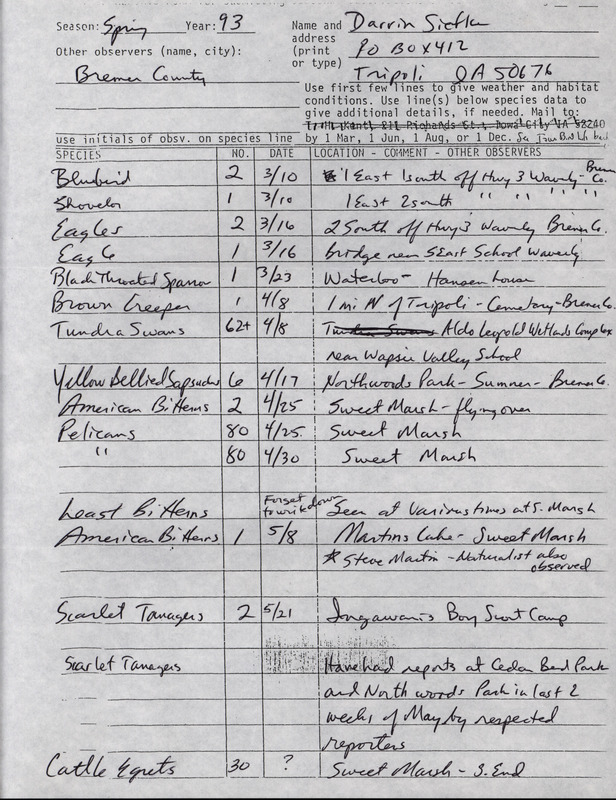 Season: Spring Year: 93
Name and Darrin Siefken
address
(print PO Box 412
or type) Tripoli IA 50676
Other observers (name, city):
Bremer County
Use first few lines to give weather and habitat
conditions. Use line(s) below species data to
give additional details, if needed. Mail to:
T.H. Kent, 211 Richards St., Iowa City IA 52240
use initials of obsv. on species line by 1 Mar, 1 Jun, 1 Aug, or 1 Dec.
SPECIES NO. DATE LOCATION - COMMENT - OTHER OBSERVERS
Bluebird 2 3/10 1 East 1 south off Hwy 3 Waverly - Bremer Co.
Shovelor 1 3/10 1 East 2 south " " " "
Eagles 2 3/16 2 South off Hwy 3 Waverly Bremer Co.
Eagle 1 3/16 bridge near SEast School Waverly
Black Throated Sparrow 1 3/23 Waterloo - Hansen house
Brown Creeper 1 4/8 1 mi N of Tripoli - Cemetary - Bremer Co.
Tundra Swans 62+ 4/8 Tundra Swans Aldo Leopold Wetlands Complex
near Wapsie Valley School
Yellow Bellied Sapsucker 6 4/17 Northwoods Park - Sumner - Bremer Co.
American Bitterns 2 4/25 Sweet Marsh - flying over
Pelicans 80 4/25 Sweet Marsh
" 80 4/30 Sweet Marsh
Least Bitterns Forget to write down Seen at various times at S. Marsh
American Bitterns 1 5/8 Martins Lake - Sweet Marsh
* Steve Martin - Naturalist also
observed
Scarlet Tanagers 2 5/21 Ingawanis Boy Scout Camp
Scarlet Tanagers Have had reports at Cedar Bend Park
and North woods Park in last 2
weeks of May by respected
reporters
Cattle Egrets 30 ? Sweet Marsh - S. End